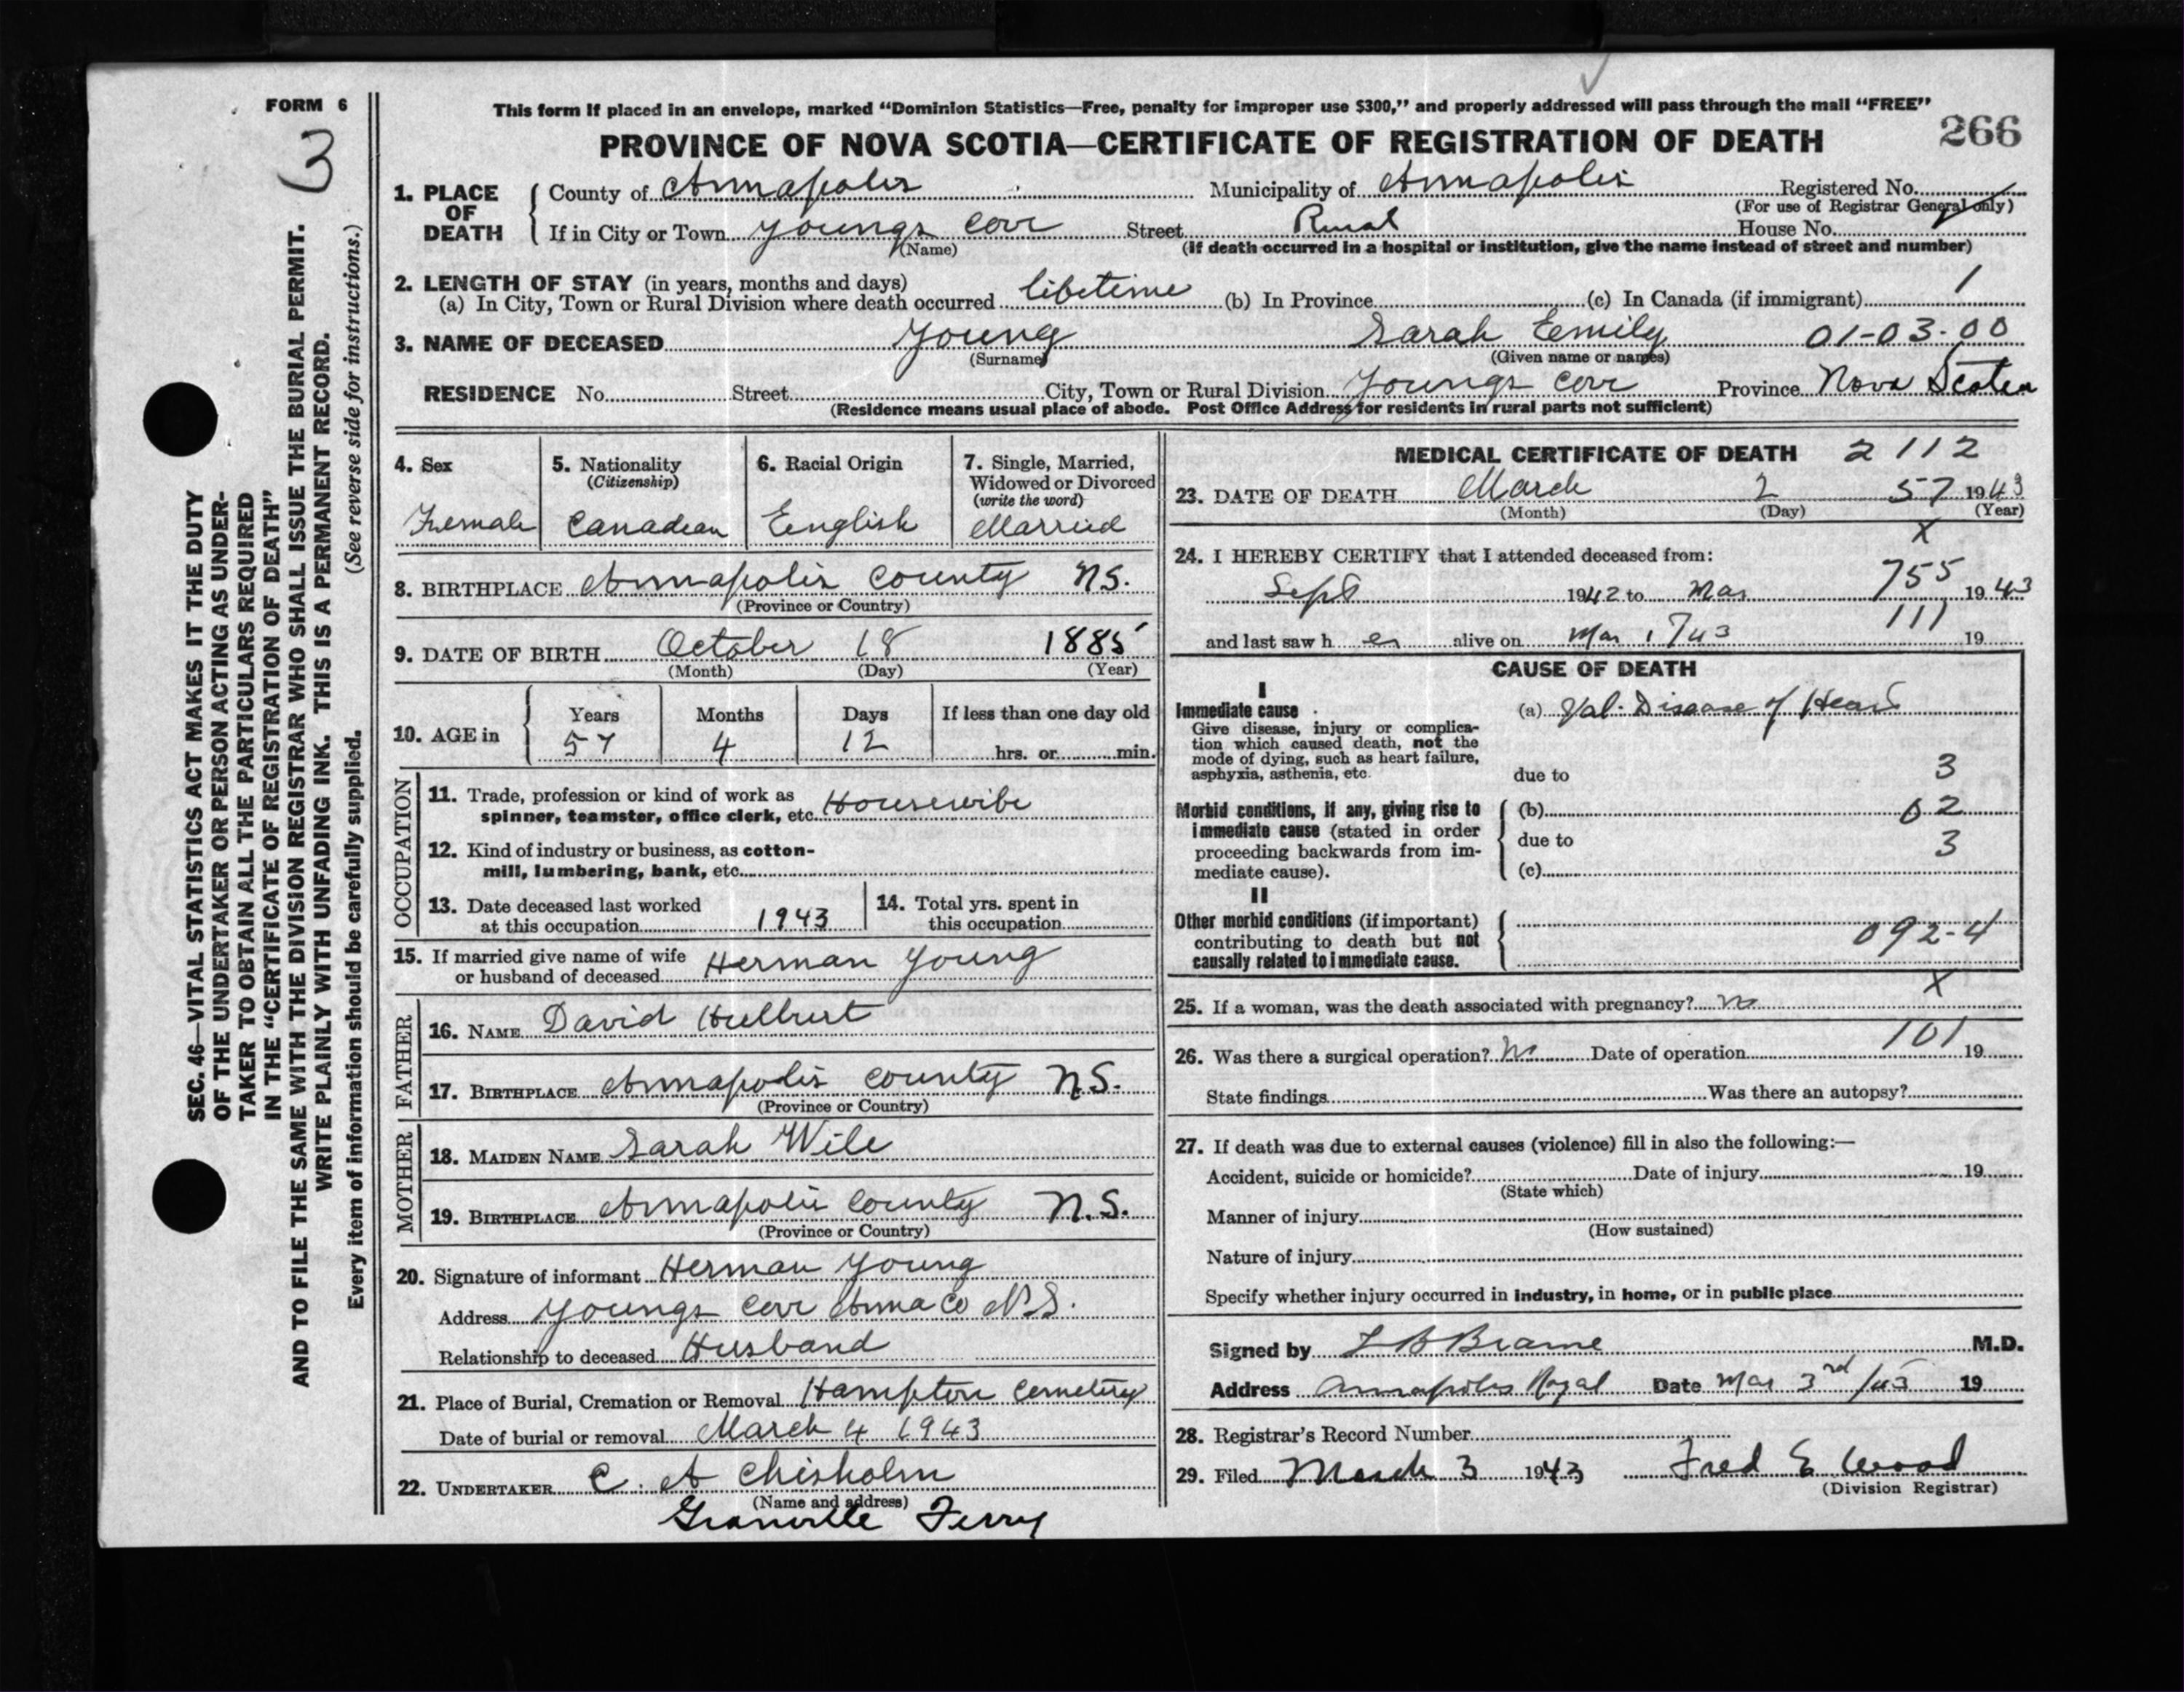 FORM 6
3
This form if placed in an envelope, marked “Dominion Statistics—Free, penalty for improper use $300,” and properly addressed will pass through the mail “FREE”
PROVINCE OF NOVA SCOTIA—CERTIFICATE OF REGISTRATION OF DEATH
266
1. PLACE OF DEATH
County of Annapolis Municipality of Annapolis Registered No.
(For use of Registrar General only)
If in City or Town Youngs Cove Street Rural House No.
(Name) (If death occurred in a hospital or institution, give the name instead of street and number)
2. LENGTH OF STAY (in years, months and days)
(a) In City, Town or Rural Division where death occurred lifetime (b) In Province (c) In Canada (if immigrant) 1
3. NAME OF DECEASED Young Sarah Emily 01-03-00
(Surname) (Given name or names)
RESIDENCE No. Street City, Town or Rural Division Youngs Cove Province Nova Scotia
(Residence means usual place of abode. Post Office Address for residents in rural parts not sufficient)
4. Sex
Female
5. Nationality
(Citizenship)
Canadian
6. Racial Origin
English
7. Single, Married,
Widowed or Divorced
(write the word)
Married
8. BIRTHPLACE Annapolis County N.S.
(Province or Country)
9. DATE OF BIRTH October 18 1885
(Month) (Day) (Year)
10. AGE in
Years Months Days If less than one day old
57 4 12 hrs. or min.
OCCUPATION
11. Trade, profession or kind of work as
spinner, teamster, office clerk, etc. Housewife
12. Kind of industry or business, as cotton-
mill, lumbering, bank, etc.
13. Date deceased last worked
at this occupation 1943
14. Total yrs. spent in
this occupation
15. If married give name of wife
or husband of deceased Herman Young
FATHER
16. NAME David Hulbert
17. BIRTHPLACE Annapolis County N.S.
(Province or Country)
MOTHER
18. MAIDEN NAME Sarah Wile
19. BIRTHPLACE Annapolis County N.S.
(Province or Country)
20. Signature of informant Herman Young
Address Youngs Cove Anna Co N.S.
Relationship to deceased Husband
21. Place of Burial, Cremation or Removal Hampton Cemetery
Date of burial or removal March 4 1943
22. UNDERTAKER C. A Chisholm
(Name and address)
Granville Ferry
MEDICAL CERTIFICATE OF DEATH 2112
23. DATE OF DEATH March 2 57 1943
(Month) (Day) (Year)
X
24. I HEREBY CERTIFY that I attended deceased from:
Sept 1942 to Mar 755 1943
and last saw h er alive on Mar 1/43 111 19
CAUSE OF DEATH
I
Immediate cause
Give disease, injury or complica-
tion which caused death, not the
mode of dying, such as heart failure,
asphyxia, asthenia, etc.
(a) Val. Disease of Heart
due to 3
Morbid conditions, if any, giving rise to
immediate cause (stated in order
proceeding backwards from im-
mediate cause).
(b) 62
due to 3
(c)
II
Other morbid conditions (if important)
contributing to death but not
causally related to immediate cause.
092-4
X
25. If a woman, was the death associated with pregnancy? no
26. Was there a surgical operation? No Date of operation 101 19
State findings Was there an autopsy?
27. If death was due to external causes (violence) fill in also the following:—
Accident, suicide or homicide? Date of injury 19
(State which)
Manner of injury
(How sustained)
Nature of injury
Specify whether injury occurred in industry, in home, or in public place
Signed by L B Braine M.D.
Address Annapolis Royal Date Mar 3rd/43 19
28. Registrar's Record Number
29. Filed March 3 1943 Fred E Wood
(Division Registrar)
SEC. 46—VITAL STATISTICS ACT MAKES IT THE DUTY
OF THE UNDERTAKER OR PERSON ACTING AS UNDER-
TAKER TO OBTAIN ALL THE PARTICULARS REQUIRED
IN THE “CERTIFICATE OF REGISTRATION OF DEATH”
AND TO FILE THE SAME WITH THE DIVISION REGISTRAR WHO SHALL ISSUE THE BURIAL PERMIT.
WRITE PLAINLY WITH UNFADING INK. THIS IS A PERMANENT RECORD.
Every item of information should be carefully supplied. (See reverse side for instructions.)